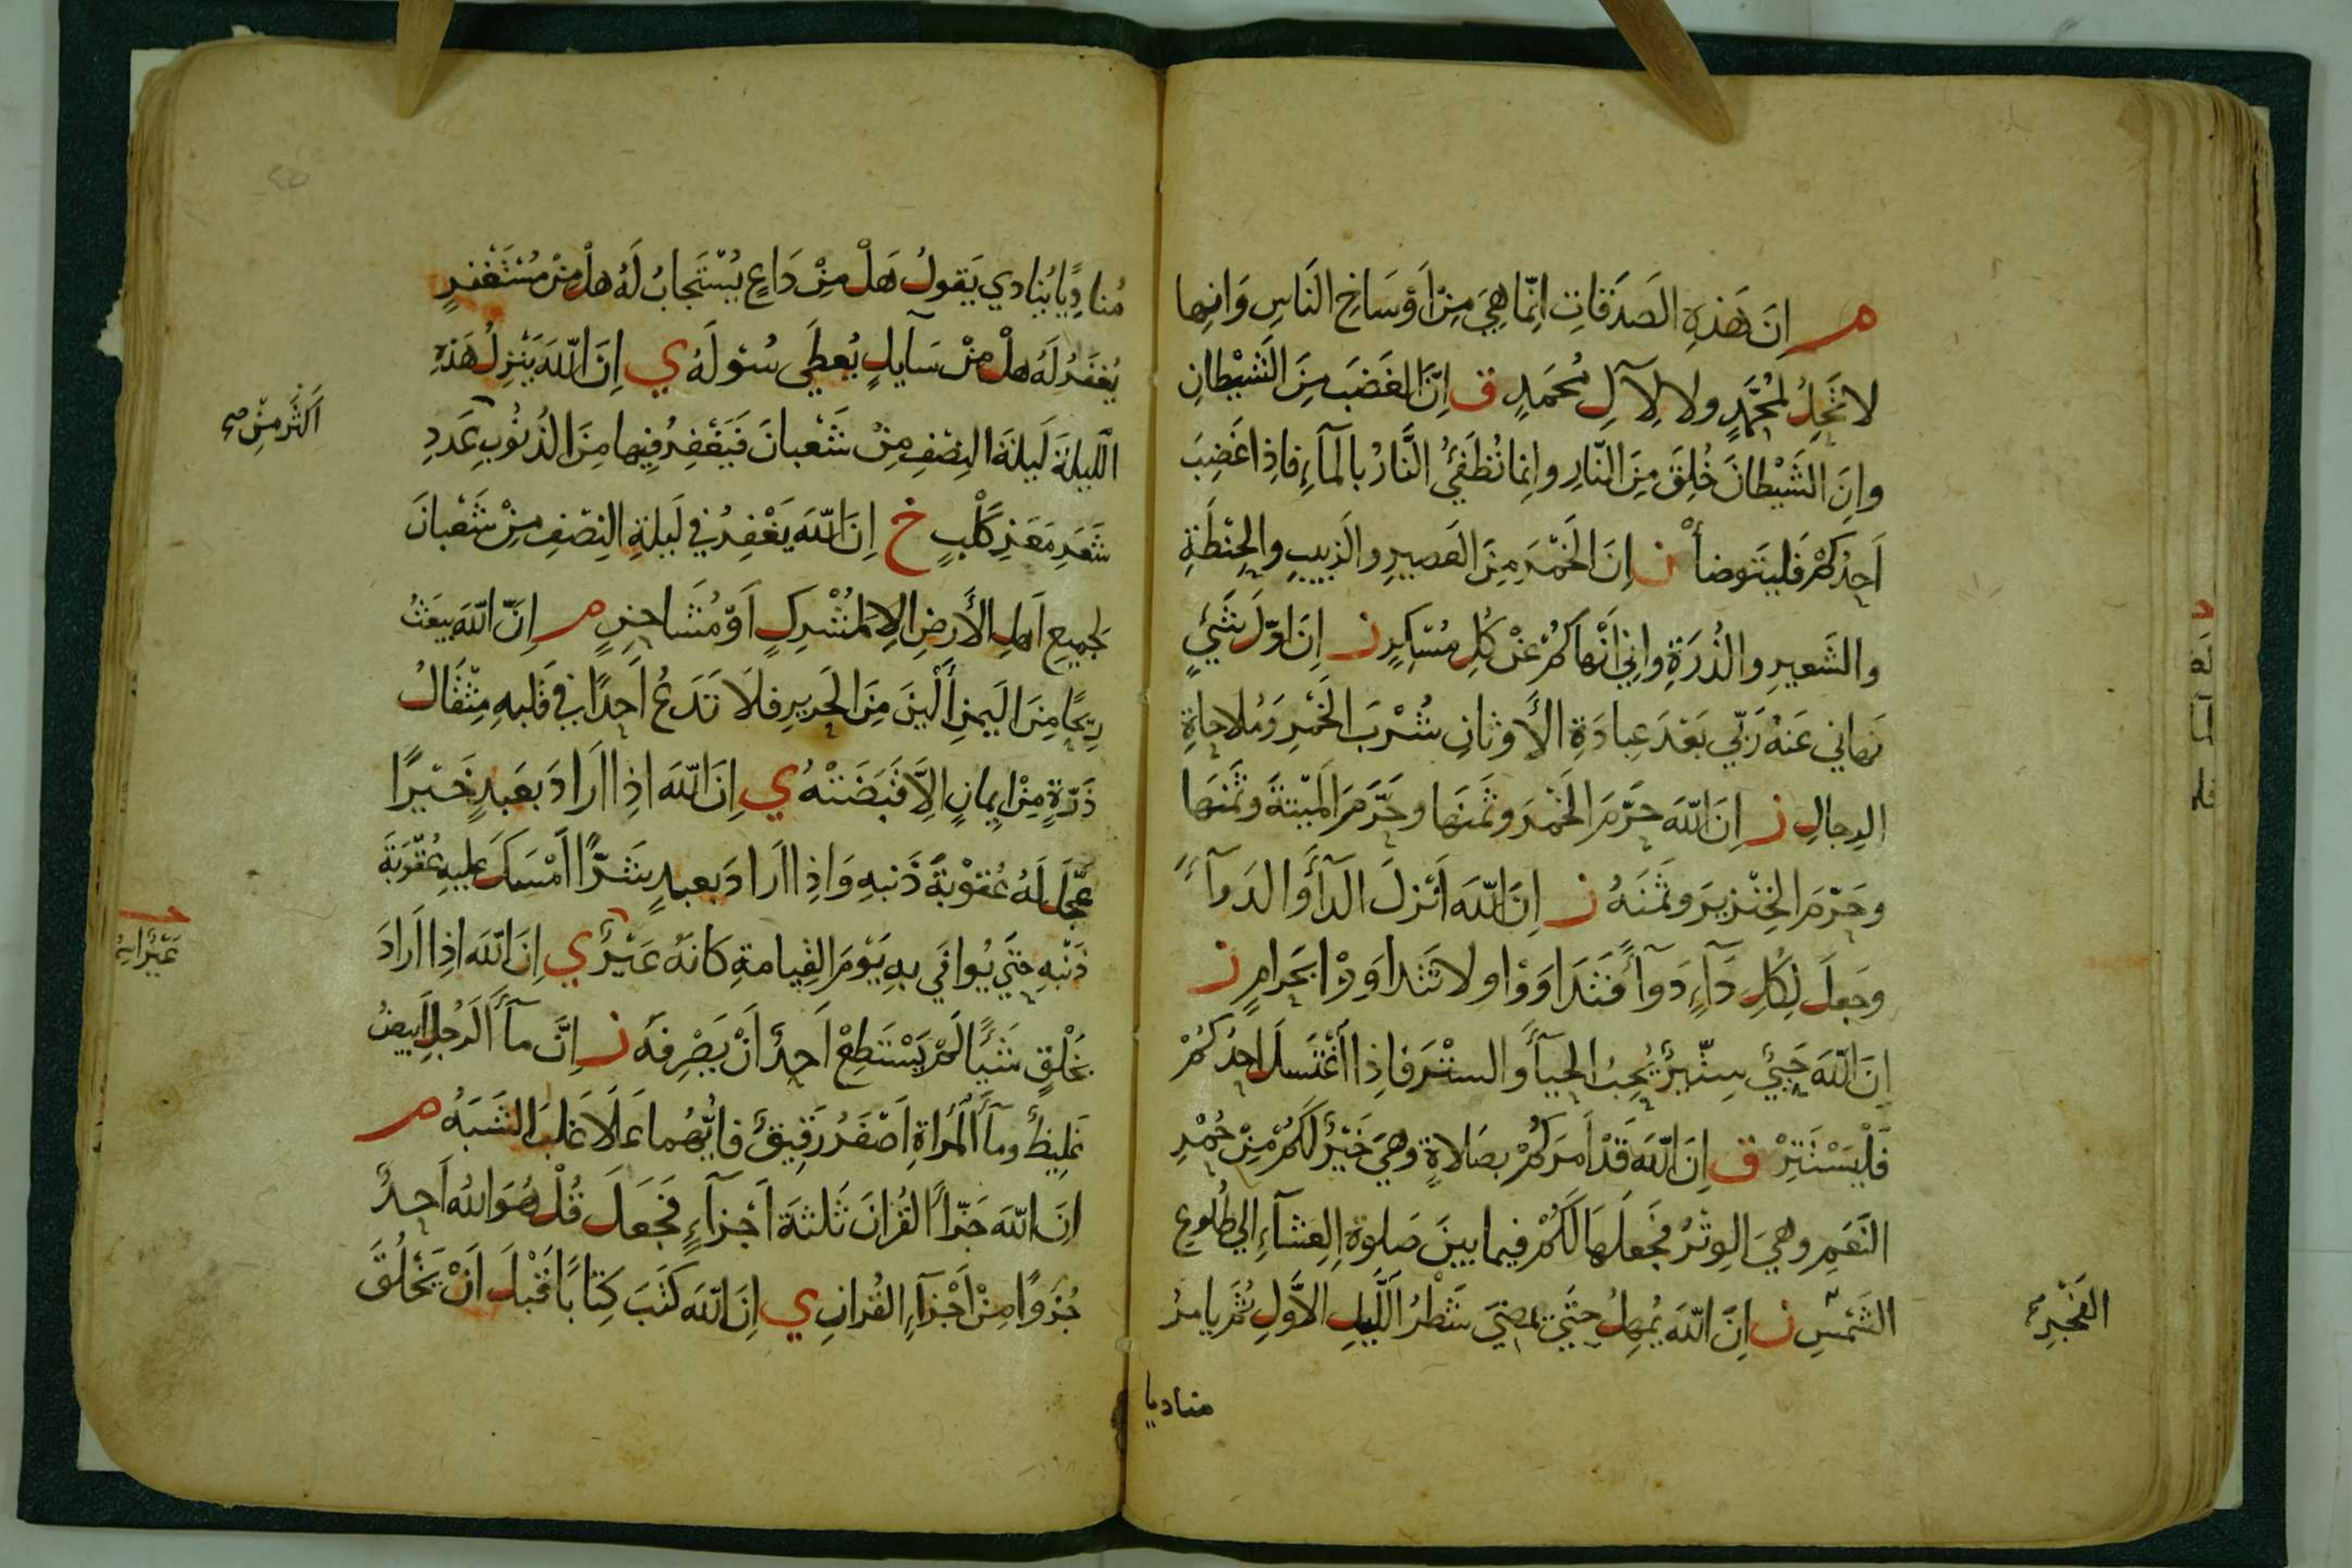 م إِنَّ هَذِهِ الصَدَقَاتِ إِنَّمَا هِيَ مِنْ أَوْسَاخِ النَّاسِ وَإِنَّهَا
لا تَحِلُّ لِمُحَمَّدٍ ولا لِآلِ مُحَمَدٍ ق إِنَّ الغَضَبَ مِنَ الشَّيْطَانِ
وإِنَّ الشَّيْطَانَ خُلِقَ مِنَ النَّارِ وإنما تُطْفَئُ النَّارُ بالمَآءِ فإِذا غَضِبَ
أَحَدُكُمْ فَليَتَوضأْ ن إِنَّ الخَمْرَ مِنَ العَصِيرِ والزَّبِيبِ والحِنْطَةِ
والشَعِيرِ والذُرَةِ وإِنِّي أَنْهَاكُمْ عَنْ كُلِ مُسْكِرٍ ن إِنَّ اوّلَ شَيْءٍ
نَهاني عَنْهُ رَبّي بَعْدَ عِبادَةِ الأَوثانِ شُرْبَ الخَمْرِ وَمُلاحاةِ
الرِجالِ ن إِنَّ اللهَ حَرَّمَ الخَمْرَ وثَمَنَها وحَرَّمَ المَيْتةَ وثَمَنَها
وحَرَّمَ الخِنْزِيرَ وثَمَنَهُ ن إِنَّ اللهَ أَنْزلَ الدآءَ والدَوآءَ
وجَعلَ لِكُلِ دَآءٍ دَوآءً فَتَدَاوَوْا ولا تَتَداوَوْا بحَرامٍ ن
إِنَّ اللهَ حَيِيٌّ سِتِّيرٌ يُحِبُ الحيآءَ والسِتْرَ فإِذا اغْتَسلَ احدُكُمْ
فَلْيَسْتَتِرْ ق إِنَّ اللهَ قَدْ أَمَرَكُمْ بصَلاةٍ وهِيَ خَيْرٌ لَكُمْ مِنْ حُمْرِ
النَّعَمِ وهِيَ الوِتْرُ فجَعلَها لَكُمْ فيما بينَ صَلوةِ العِشآءِ إلي طُلوعِ
الفَجْرِ
الشَمْسِ ن إِنَّ اللهَ يُمهِلُ حتَّي يمضِيَ شَطْرُ اللَّيلِ الأَوَّلِ ثُمَّ يامرُ
مناديا
مُنادِيًا يُنادي يَقولُ هَلْ مِنْ دَاعٍ يُسْتَجابُ لَهُ هلْ مِنْ مُسْتَغْفِرٍ
يُغْفَرُ لَهُ هلْ مِنْ سَآيلٍ يُعطَي سُئولَهُ ي إِنَّ اللهَ يَنْزِلُ هَذِهِ
اللَّيلةَ لَيلةَ النِصْفِ مِنْ شَعْبانَ فَيَغْفِرُ فِيها مِنَ الذُنُوبِ عَدَدِ
أَكثَرَ مِنْ صح
شَعَرِ مَعَزِ كَلْبٍ خ إِنَّ اللهَ يَغْفِرُ في لَيلةِ النِصْفِ مِنْ شَعْبانَ
لجميعِ أَهلِ الأَرضِ إلا لمُشْرِكٍ أَوْ مُشاحِنٍ م إِنَّ اللهَ يبعَثُ
رِيحًا مِنَ اليَمنِ أَلْينَ مِنَ الحَرِيرِ فلا تَدَعُ أَحدًا في قَلبهِ مِثْقَالُ
ذَرَّةٍ مِنْ إيمانٍ إلاَّ قَبَضَتْهُ ي إِنَّ اللهَ إِذا أَرادَ بعَبدٍ خَيْرًا
عَجَّلَ لَهُ عُقوْبةَ ذَنبهِ وَإِذا أَرادَ بعبدٍ شَرًّا أَمْسَكَ عليهِ عُقُوبَةَ
ذَنْبهِ حتَّي يُوافَي بهِ يَوْمَ القِيامةِ كَانهُ عَيْرٌ ي إِنَّ اللهَ إذا أَرادَ
بخَلْقٍ شَيًا لَمْ يَسْتَطِعْ أَحدٌ أَنْ يَصْرِفَهُ ن إِنَّ مآءَ الرجُلِ أَبيضُ
غَلِيظٌ ومآءَ المَرأَةِ أَصْفَرُ رَقِيقٌ فأَيُّهُما عَلاَ غَلبَ الشَبَهُ م
إِنَّ اللهَ جَزَّأَ القُرآنَ ثَلثةَ أَجزآءٍ فجَعلَ قُلْ هُوَ اللهُ أَحدٌ
جُزءًا مِنْ أَجْزآءِ القُرآنِ ي إِنَّ اللهَ كتَبَ كِتابًا قَبْلَ أَنْ يَخْلُقَ